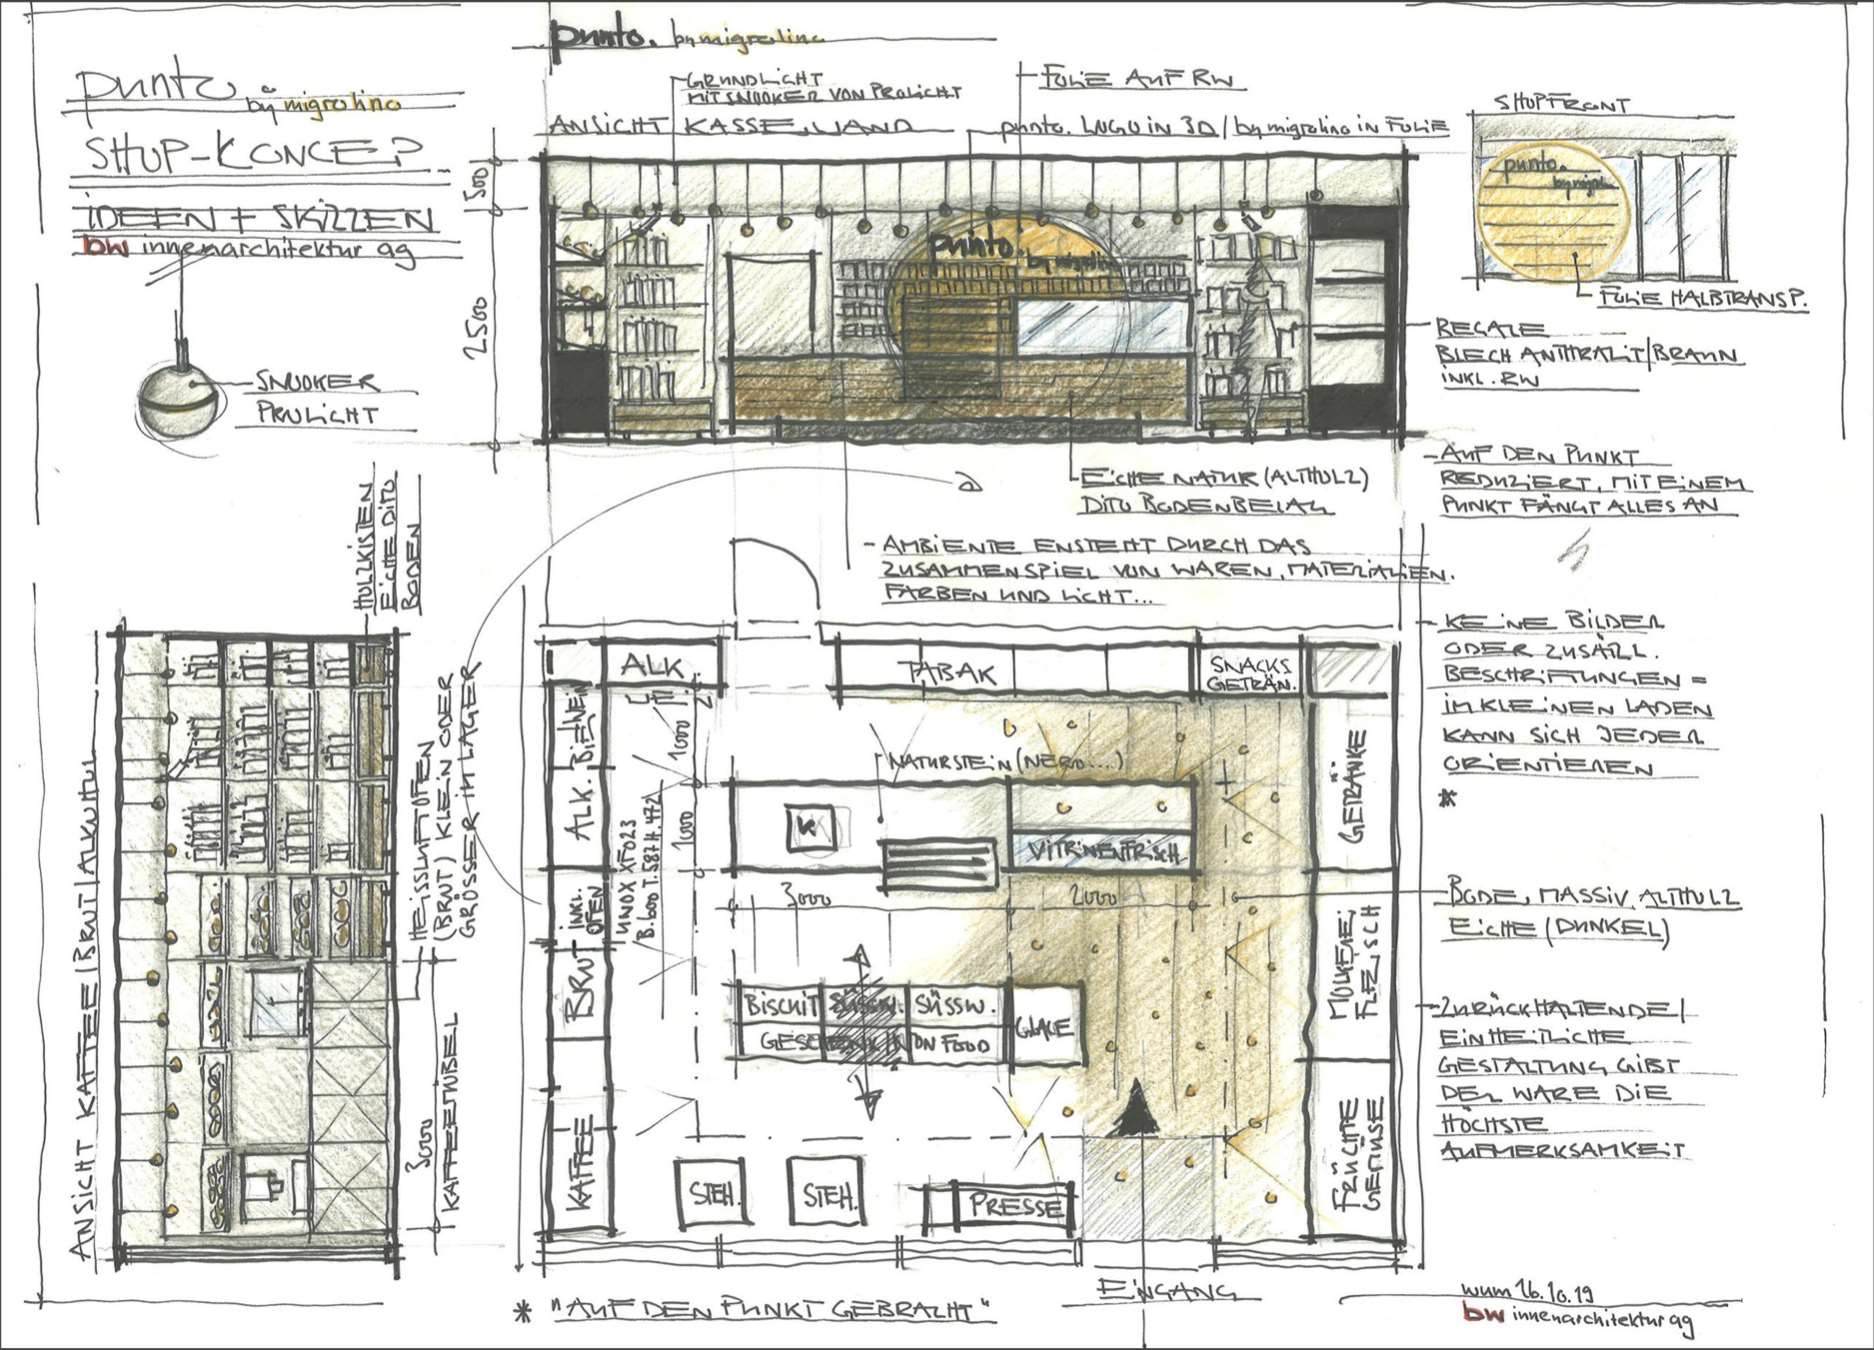 punto.
by migrolino
SHOP-KONCEP
IDEEN + SKIZZEN
bw innenarchitektur ag
SNOOKER
PROLICHT
punto. by migrolino
GRUNDLICHT
MIT SNOOKER VON PROLICHT
FOLIE AUF RW
ANSICHT KASSE, WAND
punto. LOGO IN 3D / by migrolino in FOLIE
500
2500
punto.
by migrolino
SHOPFRONT
punto.
by migro
FOLIE HALBTRANSP.
REGALE
BLECH ANTHRAZIT/BRAUN
INKL. RW
EICHE NATUR (ALTHOLZ)
DITO BODENBELAG
- AUF DEN PUNKT
REDUZIERT, MIT EINEM
PUNKT FÄNGT ALLES AN
- AMBIENTE ENSTEHT DURCH DAS
ZUSAMMENSPIEL VON WAREN, MATERIALIEN.
FARBEN UND LICHT...
- KEINE BILDER
ODER ZUSÄTZL.
BESCHRIFTUNGEN =
IM KLEINEN LADEN
KANN SICH JEDER
ORIENTIEREN
*
BODE, MASSIV ALTHOLZ
EICHE (DUNKEL)
- ZURÜCKHALTENDE/
EINHEITLICHE
GESTALTUNG GIBT
DER WARE DIE
HÖCHSTE
AUFMERKSAMKEIT
ANSICHT KAFFEE/BROT/ALKOHOL
HOLZKISTEN
EICHE DITO
BODEN
HEISSLUFTOFEN
(BROT) KLEIN ODER
GRÖSSER IM LAGER
3000
KAFFEEMÖBEL
ALK
TABAK
SNACKS
GETRÄN.
ALK. BIE WEIN
1000
1000
UNOX XF023
B.600 T.587 H.472
BROT INKL.
OFEN
KAFFEE
NATURSTEIN (NERO....)
K
VITRINE FRISCH
3000
2000
BISCUIT
SÜSSW.
SÜSSW.
GLACE
GESCHENK NON FOOD
STEH.
STEH.
PRESSE
GETRÄNKE
MOLKEREI
FLEISCH
FRÜCHTE
GEMÜSE
EINGANG
* "AUF DEN PUNKT GEBRACHT"
wum 16.10.19
bw innenarchitektur ag